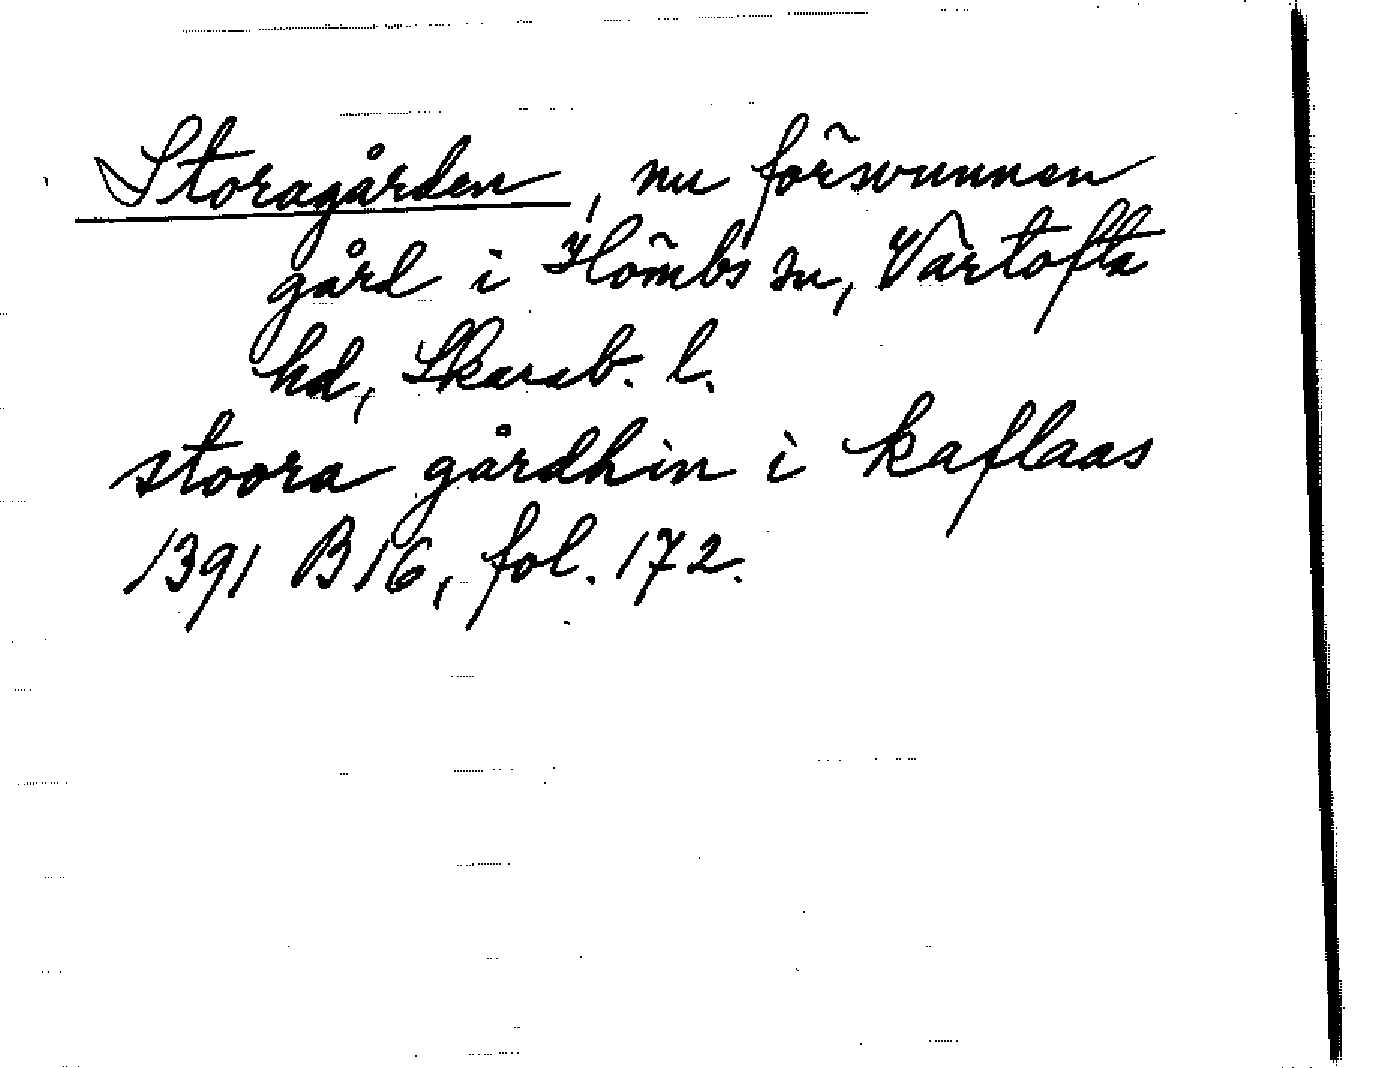 Storagården, nu försvunnen
gård i Hömbs sn, Vartofta
hd, Skarab. l.
stoora gårdhin i kaflaas
1391 B16, fol. 172.